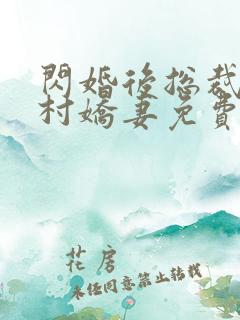 閃婚後總裁
村嬌妻免費
花房
未經同意禁止轉載